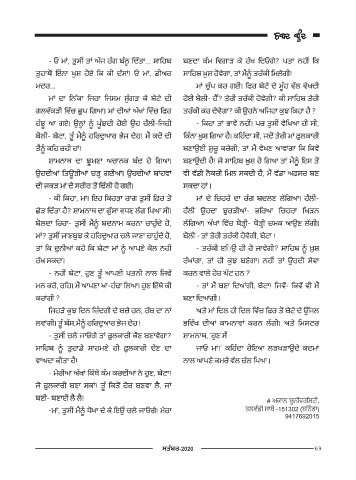 ਹਵਾਲਾ ਬੂੰਦ
- ਓ ਮਾਂ, ਤੁਸੀਂ ਤਾਂ ਅੱਜ ਰੰਗ ਬੰਨ੍ਹ ਦਿੱਤਾ... ਸਾਹਿਬ
ਤੁਹਾਥੋਂ ਇੰਨਾ ਖੁਸ਼ ਹੋਏ ਕਿ ਕੀ ਦੱਸਾਂ! ਓ ਮਾਂ, ਡੀਅਰ
ਮਦਰ...
ਮਾਂ ਦਾ ਨਿੱਕਾ ਜਿਹਾ ਜਿਸਮ ਸੁੰਗੜ ਕੇ ਬੇਟੇ ਦੀ
ਗਲਵੱਕੜੀ ਵਿੱਚ ਛੁਪ ਗਿਆ। ਮਾਂ ਦੀਆਂ ਅੱਖਾਂ ਵਿੱਚ ਫਿਰ
ਹੰਝੂ ਆ ਗਏ। ਉਨ੍ਹਾਂ ਨੂੰ ਪੂੰਝਦੀ ਹੋਈ ਉਹ ਹੌਲੀ-ਜਿਹੀ
ਬੋਲੀ- ਬੇਟਾ, ਤੂੰ ਮੈਨੂੰ ਹਰਿਦੁਆਰ ਭੇਜ ਦੇਹ। ਮੈਂ ਕਦੋਂ ਦੀ
ਤੈਨੂੰ ਕਹਿ ਰਹੀ ਹਾਂ।
ਸ਼ਾਮਨਾਥ ਦਾ ਝੂਮਣਾ ਅਚਾਨਕ ਬੰਦ ਹੋ ਗਿਆ।
ਉਹਦੀਆਂ ਤਿਊੜੀਆਂ ਚੜ੍ਹ ਗਈਆਂ। ਉਹਦੀਆਂ ਬਾਹਵਾਂ
ਦੀ ਜਕੜ ਮਾਂ ਦੇ ਸਰੀਰ ਤੋਂ ਢਿੱਲੀ ਹੋ ਗਈ।
- ਕੀ ਕਿਹਾ, ਮਾਂ! ਇਹ ਕਿਹੜਾ ਰਾਗ ਤੁਸੀਂ ਫਿਰ ਤੋਂ
ਛੇੜ ਦਿੱਤਾ ਹੈ? ਸ਼ਾਮਨਾਥ ਦਾ ਗੁੱਸਾ ਵਧਣ ਲੱਗ ਪਿਆ ਸੀ।
ਬੋਲਦਾ ਰਿਹਾ- ਤੁਸੀਂ ਮੈਨੂੰ ਬਦਨਾਮ ਕਰਨਾ ਚਾਹੁੰਦੇ ਹੋ,
ਮਾਂ? ਤੁਸੀਂ ਜਾਣਬੁਝ ਕੇ ਹਰਿਦੁਆਰ ਚਲੇ ਜਾਣਾ ਚਾਹੁੰਦੇ ਹੋ,
ਤਾਂ ਕਿ ਦੁਨੀਆਂ ਕਹੇ ਕਿ ਬੇਟਾ ਮਾਂ ਨੂੰ ਆਪਣੇ ਕੋਲ ਨਹੀਂ
ਰੱਖ ਸਕਦਾ।
- ਨਹੀਂ ਬੇਟਾ, ਹੁਣ ਤੂੰ ਆਪਣੀ ਪਤਨੀ ਨਾਲ ਜਿਵੇਂ
ਮਨ ਕਰੇ, ਰਹਿ। ਮੈਂ ਆਪਣਾ ਖਾ-ਹੰਢਾ ਲਿਆ। ਹੁਣ ਇੱਥੇ ਕੀ
ਕਰਾਂਗੀ ?
ਜਿਹੜੇ ਕੁਝ ਦਿਨ ਜ਼ਿੰਦਗੀ ਦੇ ਬਚੇ ਹਨ, ਰੱਬ ਦਾ ਨਾਂ
ਲਵਾਂਗੀ। ਤੂੰ ਬੱਸ,ਮੈਨੂੰ ਹਰਿਦੁਆਰ ਭੇਜ ਦੇਹ।
- ਤੁਸੀਂ ਚਲੇ ਜਾਓਗੇ ਤਾਂ ਫੁਲਕਾਰੀ ਕੌਣ ਬਣਾਵੇਗਾ?
ਸਾਹਿਬ ਨੂੰ ਤੁਹਾਡੇ ਸਾਹਮਣੇ ਹੀ ਫੁਲਕਾਰੀ ਦੇਣ ਦਾ
ਵਾਅਦਾ ਕੀਤਾ ਹੈ।
- ਮੇਰੀਆਂ ਅੱਖਾਂ ਕਿੱਥੇ ਕੰਮ ਕਰਦੀਆਂ ਨੇ ਹੁਣ, ਬੇਟਾ!
ਜੋ ਫੁਲਕਾਰੀ ਬਣਾ ਸਕਾਂ। ਤੂੰ ਕਿਤੋਂ ਹੋਰ ਬਣਵਾ ਲੈ, ਜਾਂ
ਬਣੀ- ਬਣਾਈ ਲੈ ਲੈ।
-ਮਾਂ, ਤੁਸੀਂ ਮੈਨੂੰ ਧੋਖਾ ਦੇ ਕੇ ਇਉਂ ਚਲੇ ਜਾਓਗੇ। ਮੇਰਾ
ਬਣਦਾ ਕੰਮ ਵਿਗਾੜ ਕੇ ਰੱਖ ਦਿਓਗੇ? ਪਤਾ ਨਹੀਂ ਕਿ
ਸਾਹਿਬ ਖੁਸ਼ ਹੋਵੇਗਾ, ਤਾਂ ਮੈਨੂੰ ਤਰੱਕੀ ਮਿਲੇਗੀ!
ਮਾਂ ਚੁੱਪ ਕਰ ਗਈ। ਫਿਰ ਬੇਟੇ ਦੇ ਮੂੰਹ ਵੱਲ ਵੇਖਦੀ
ਹੋਈ ਬੋਲੀ- ਹੈਂ? ਤੇਰੀ ਤਰੱਕੀ ਹੋਵੇਗੀ? ਕੀ ਸਾਹਿਬ ਤੇਰੀ
ਤਰੱਕੀ ਕਰ ਦੇਵੇਗਾ? ਕੀ ਉਹਨੇ ਅਜਿਹਾ ਕੁਝ ਕਿਹਾ ਹੈ ?
- ਕਿਹਾ ਤਾਂ ਭਾਵੇਂ ਨਹੀਂ। ਪਰ ਤੁਸੀਂ ਵੇਖਿਆ ਹੀ ਸੀ,
ਕਿੰਨਾ ਖੁਸ਼ ਗਿਆ ਹੈ। ਕਹਿੰਦਾ ਸੀ, ਜਦੋਂ ਤੇਰੀ ਮਾਂ ਫੁਲਕਾਰੀ
ਬਣਾਉਣੀ ਸ਼ੁਰੂ ਕਰੇਗੀ, ਤਾਂ ਮੈਂ ਵੇਖਣ ਆਵਾਂਗਾ ਕਿ ਕਿਵੇਂ
ਬਣਾਉਂਦੀ ਹੈ। ਜੇ ਸਾਹਿਬ ਖੁਸ਼ ਹੋ ਗਿਆ ਤਾਂ ਮੈਨੂੰ ਇਸ ਤੋਂ
ਵੀ ਵੱਡੀ ਨੌਕਰੀ ਮਿਲ ਸਕਦੀ ਹੈ, ਮੈਂ ਵੱਡਾ ਅਫ਼ਸਰ ਬਣ
ਸਕਦਾ ਹਾਂ।
ਮਾਂ ਦੇ ਚਿਹਰੇ ਦਾ ਰੰਗ ਬਦਲਣ ਲੱਗਿਆ। ਹੌਲੀ-
ਹੌਲੀ ਉਹਦਾ ਝੁਰੜੀਆਂ- ਭਰਿਆ ਚਿਹਰਾ ਖਿੜਨ
ਲੱਗਿਆ। ਅੱਖਾਂ ਵਿੱਚ ਥੋੜ੍ਹੀ- ਥੋੜ੍ਹੀ ਚਮਕ ਆਉਣ ਲੱਗੀ।
ਬੋਲੀ - ਤਾਂ ਤੇਰੀ ਤਰੱਕੀ ਹੋਵੇਗੀ, ਬੇਟਾ !
- ਤਰੱਕੀ ਇਉਂ ਹੀ ਹੋ ਜਾਵੇਗੀ? ਸਾਹਿਬ ਨੂੰ ਖੁਸ਼
ਰੱਖਾਂਗਾ, ਤਾਂ ਹੀ ਕੁਝ ਬਣੇਗਾ। ਨਹੀਂ ਤਾਂ ਉਹਦੀ ਸੇਵਾ
ਕਰਨ ਵਾਲੇ ਹੋਰ ਘੱਟ ਹਨ ?
- ਤਾਂ ਮੈਂ ਬਣਾ ਦਿਆਂਗੀ, ਬੇਟਾ! ਜਿਵੇਂ- ਕਿਵੇਂ ਵੀ ਮੈਂ
ਬਣਾ ਦਿਆਂਗੀ।
ਅਤੇ ਮਾਂ ਦਿਲ ਹੀ ਦਿਲ ਵਿੱਚ ਫਿਰ ਤੋਂ ਬੇਟੇ ਦੇ ਉੱਜਲ
ਭਵਿੱਖ ਦੀਆਂ ਕਾਮਨਾਵਾਂ ਕਰਨ ਲੱਗੀ। ਅਤੇ ਮਿਸਟਰ
ਸ਼ਾਮਨਾਥ, 'ਹੁਣ ਸੌਂ
ਜਾਓ ਮਾਂ!' ਕਹਿੰਦਾ ਹੋਇਆ ਲੜਖੜਾਉਂਦੇ ਕਦਮਾਂ
ਨਾਲ ਆਪਣੇ ਕਮਰੇ ਵੱਲ ਚੱਲ ਪਿਆ।
# ਅਕਾਲ ਯੂਨੀਵਰਸਿਟੀ,
ਤਲਵੰਡੀ ਸਾਬੋ -151302 (ਬਠਿੰਡਾ)
9417692015
ਸਤੰਬਰ-2020
69